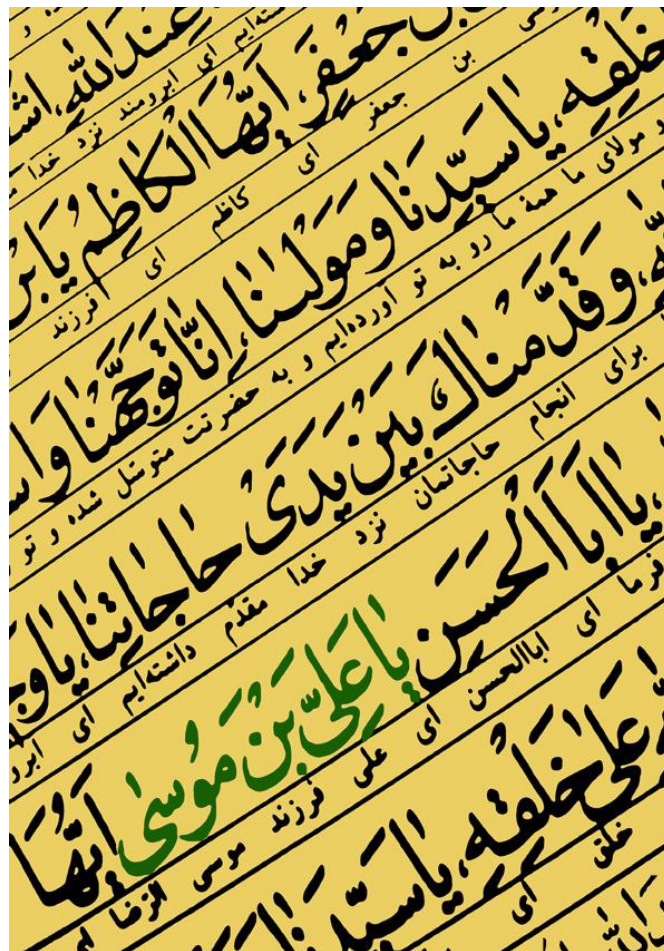 عِنْدَ اللهِ، 
ای ابرومند نزد خدا
جَعْفَرٍ، اَیُّهَا الْکاظِمُ یَا بْنَ
بن جعفر ای کاظم ای فرزند
خَلْقِهِ، یا سَیِّدَنا وَ مَوْلینا، اِنّا تَوَجَّهْنا وَ
مولای ما همۀ ما رو به تو آورده‌ایم و به حضرتت متوسّل شده و تو
وَ قَدَّمْناکَ بَیْنَ یَدَیْ حاجاتِنا، یا
برای انجام حاجاتمان نزد خدا مقدّم داشته‌ایم ای
یا اَبَا الْحَسَنِ یا عَلِیَّ بْنَ مُوسی اَیُّهَا
فرما ای اباالحسن ای علی فرزند موسی الرّضا
عَلی خَلْقِهِ، یا سَیِّدَنا
خلق ای